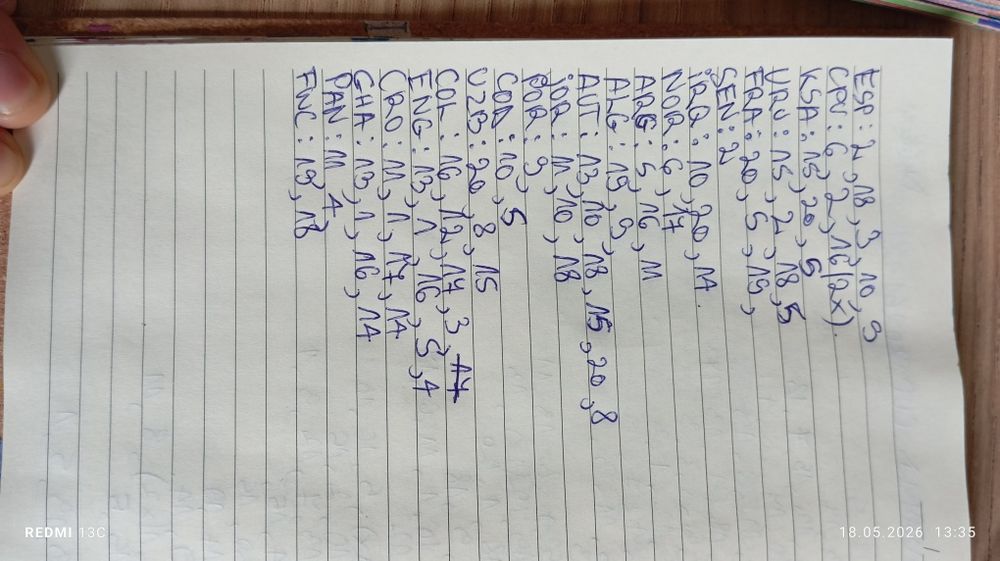 ESP: 2, 18, 3, 10, 9
CPV: 6, 2, 16 (2x)
KSA: 15, 20, 5
URU: 15, 2, 18, 5
FRA: 20, 5, 19,
SEN: 2
IRQ: 10, 20, 14.
NOR: 6, 17
ARG: 5, 16, 11
ALG: 19, 9
AUT: 13, 10, 18, 15, 20, 8
JOR: 11, 10, 18
POR: 9,
COD: 10, 5
UZB: 20, 8, 15
COL: 16, 12, 17, 3,
ENG: 13, 11, 16, 5, 7
CRO: 11, 1, 17, 14
GHA: 13, 1, 16, 14
PAN: 11, 4
FWC: 19, 18
REDMI 13C
18.05.2026 13:35